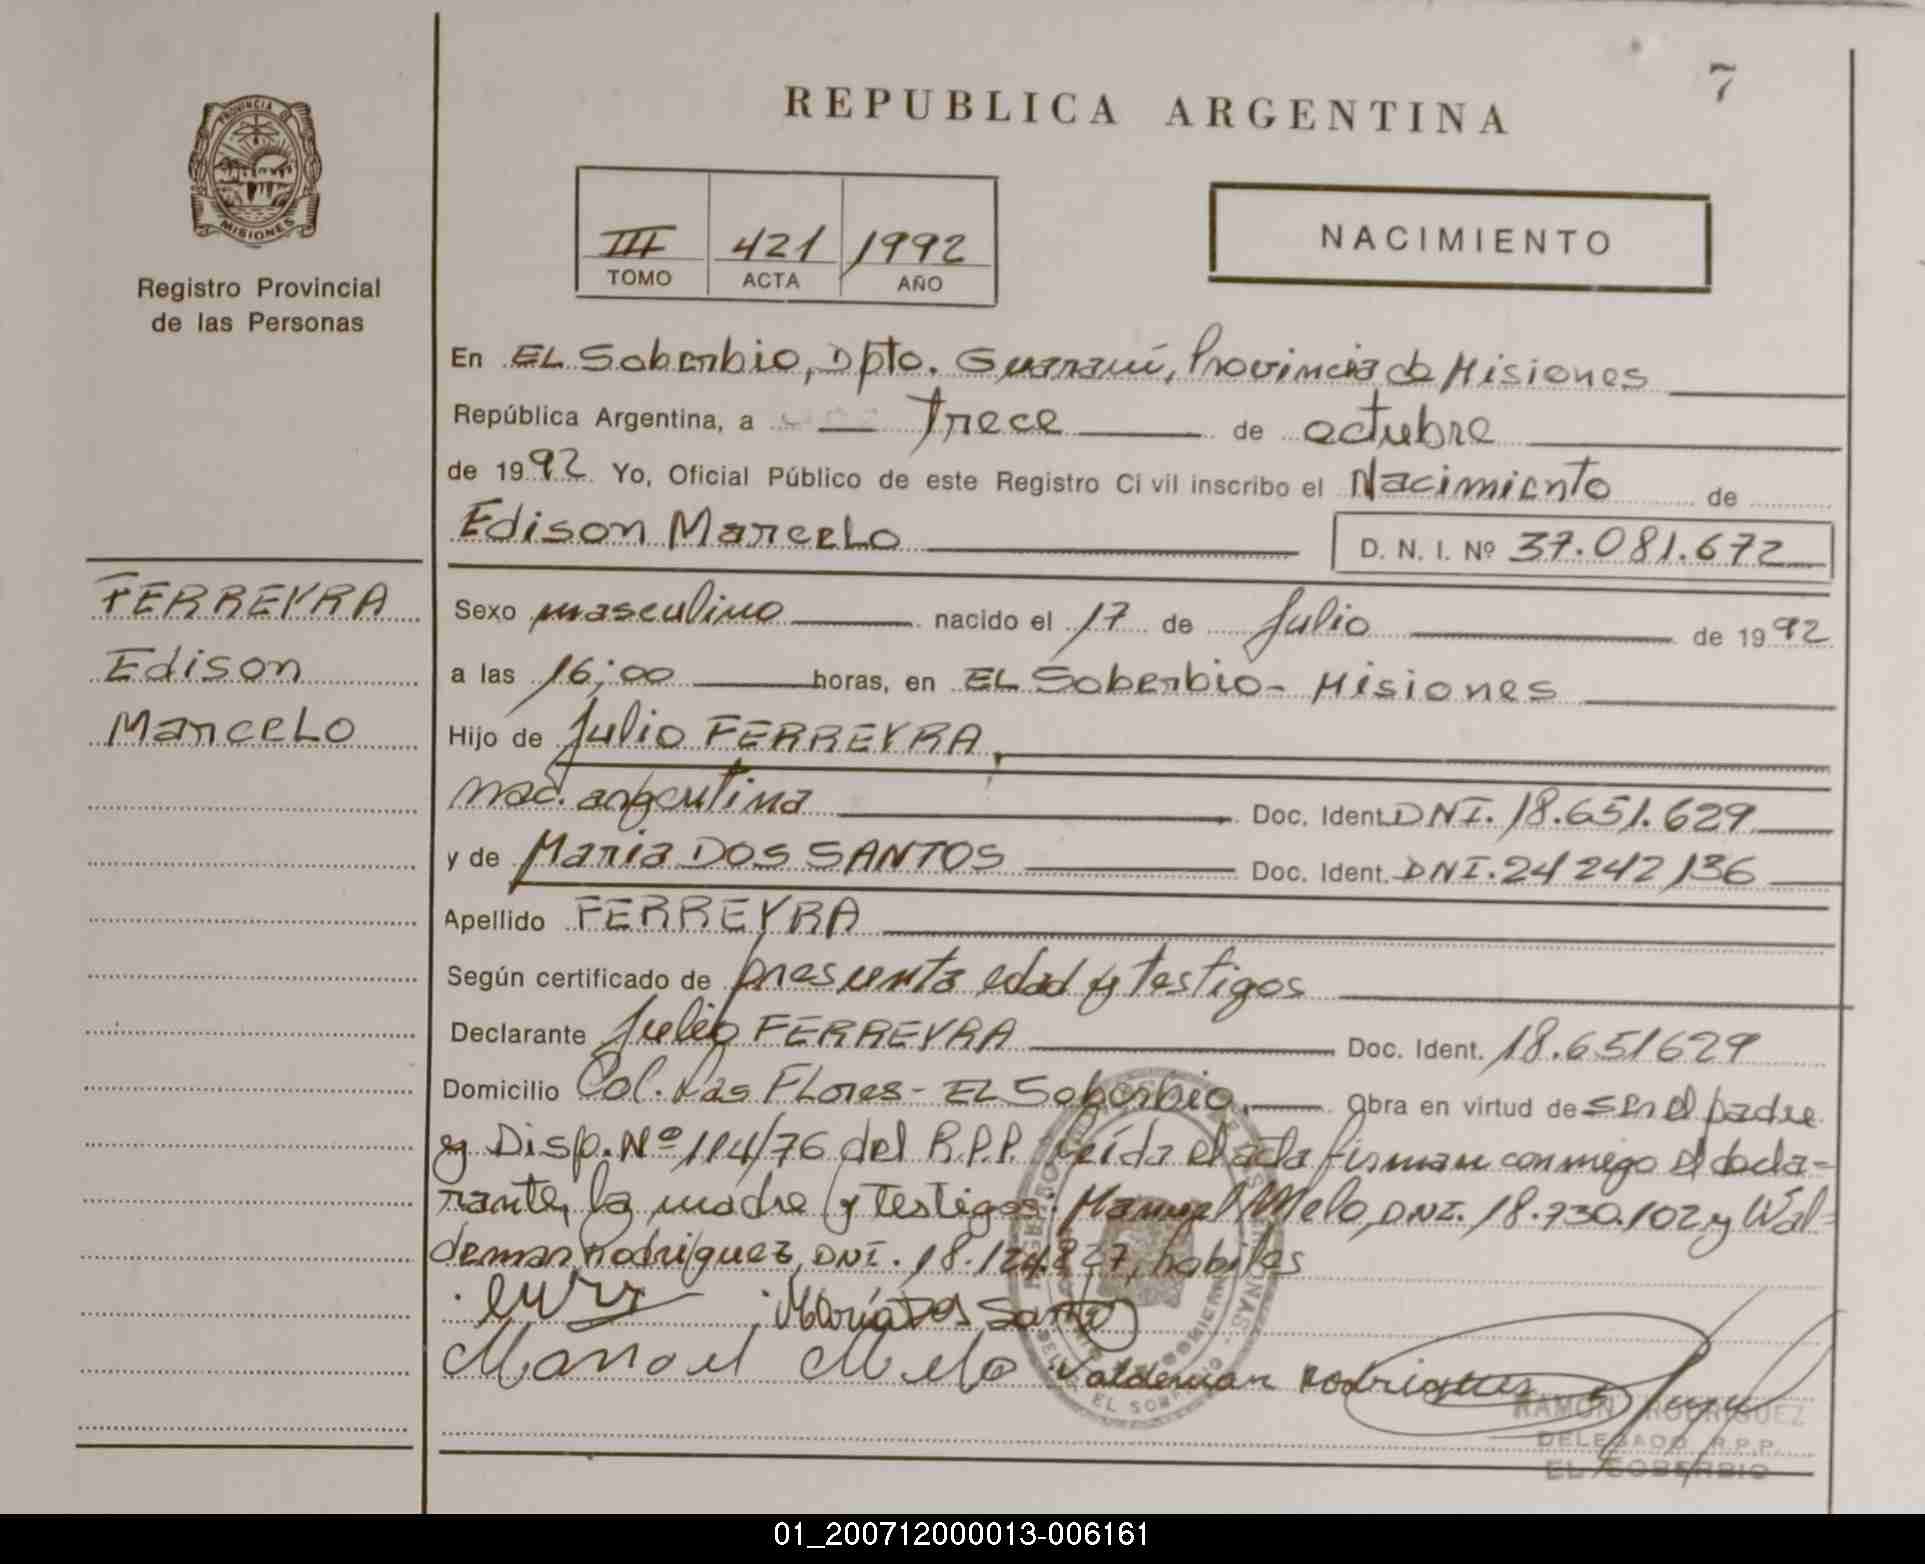 7
REPUBLICA ARGENTINA
PROVINCIA DE
MISIONES
Registro Provincial
de las Personas
III 421 1992
TOMO ACTA AÑO
NACIMIENTO
En EL Soberbio, Dpto. Guaraní, Provincia de Misiones
República Argentina, a trece de octubre
de 1992 Yo, Oficial Público de este Registro Civil inscribo el Nacimiento de
Edison Marcelo D. N. I. Nº 37.081.672
FERREYRA
Edison
Marcelo
Sexo masculino nacido el 17 de Julio de 1992
a las 16;00 horas, en EL Soberbio - Misiones
Hijo de Julio FERREYRA,
nac. argentina Doc. Ident. DNI. 18.651.629
y de Maria DOS SANTOS Doc. Ident. DNI. 24 242 136
Apellido FERREYRA
Según certificado de presunta edad y testigos
Declarante Julio FERREYRA Doc. Ident. 18.651629
Domicilio Col. Las Flores - EL Soberbio. Obra en virtud de ser el padre
y Disp. Nº 114/76 del R.P.P. Leída el acta firman conmigo el decla-
rante, la madre y testigos: Manuel Melo, DNI. 18.730.102 y Wal-
demar Rodriguez, DNI. 18.124.827, habiles
María Dos Santo
Manoel Melo Valdemar Rodrigues
RAMON RODRIGUEZ
DELEGADO R.P.P.
EL SOBERBIO
01_200712000013-006161